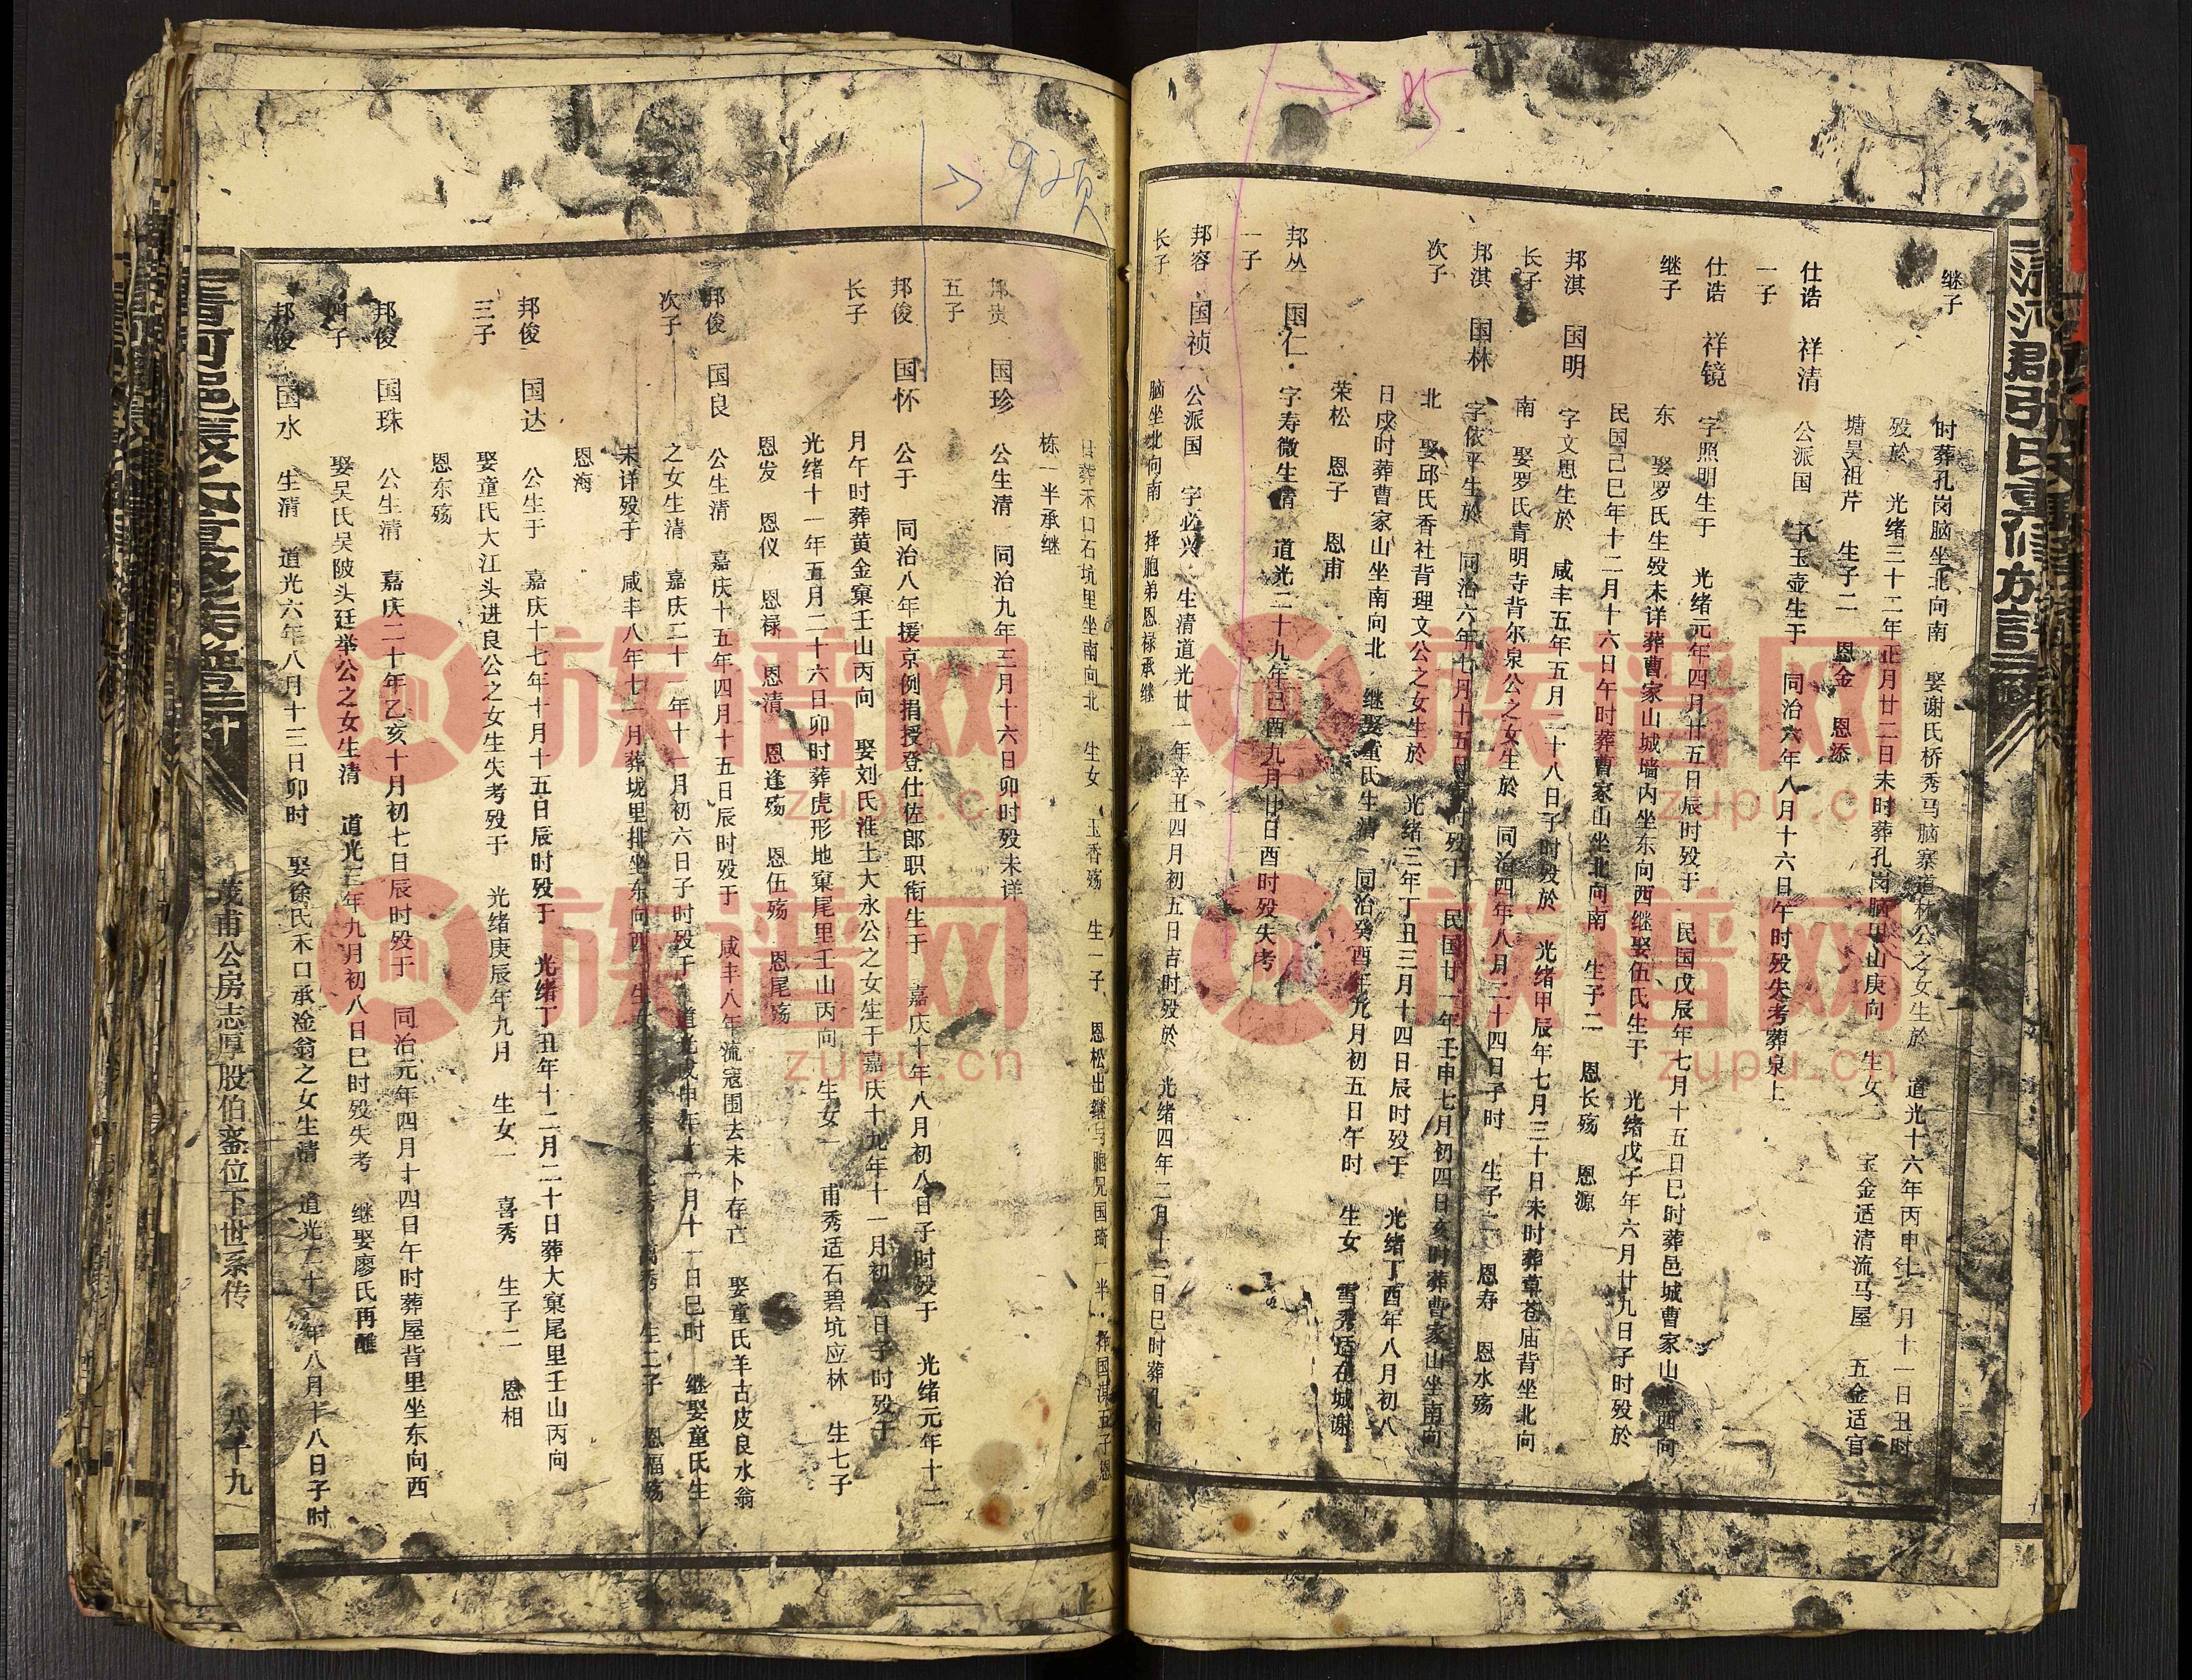 继子
时葬孔岗脑坐北向南 娶谢氏桥秀马脑寨道林公之女生於 道光十六年丙申十一月十一日丑时
殁於 光绪三十二年正月廿二日未时葬孔岗脑甲山庚向 生女二 宝金适清流马屋 五金适官
塘昊祖芹 生子二 恩金 恩添
仕诰 祥清 公派国 字玉壶生于 同治六年八月十六日午时殁失考葬泉上
一子
仕诰 祥镜 字照明生于 光绪元年四月廿五日辰时殁于 民国戊辰年七月十五日巳时葬邑城曹家山 西向
继子 东 娶罗氏生殁未详葬曹家山城墙内坐东向西继娶伍氏生于 光绪戊子年六月廿九日子时殁於
民国己巳年十二月十六日午时葬曹家山坐北向南 生子二 恩长殇 恩源
邦淇 国明 字文思生於 咸丰五年五月二十八日子时殁於 光绪甲辰年七月三十日未时葬草苍庙背坐北向
长子 南 娶罗氏青明寺背尔泉公之女生於 同治四年八月二十四日子时 生子二 恩寿 恩水殇
邦淇 国林 字依平生於 同治六年七月十五日 时殁于 民国廿一年壬申七月初四日亥时葬曹家山坐南向
次子 北 娶邱氏香社背理文公之女生於 光绪三年丁丑三月十四日辰时殁于 光绪丁酉年八月初八
日戌时葬曹家山坐南向北 继娶童氏生清 同治癸酉年九月初五日午时 生女 雪秀适在城谢
荣松 恩子 恩甫
邦丛 国仁 字寿微生清 道光二十九年己酉九月廿日酉时殁失考
一子
邦容 国祯 公派国 字必兴 生清道光廿一年辛丑四月初五日吉时殁於 光绪四年二月十二日巳时葬孔岗
长子 脑坐北向南 择胞弟恩禄承继
日葬禾口石坑里坐南向北 生女 玉香殇 生一子 恩松出继与胞兄国琦一半 择国淇五子恩
栋一半承继
邦贵 国珍 公生清 同治九年三月十六日卯时殁未详
五子
邦俊 国怀 公于 同治八年援京例捐授登仕佐郎职衔生于 嘉庆十年八月初八日子时殁于 光绪元年十二
长子 月午时葬黄金窠壬山丙向 娶刘氏淮土大永公之女生于嘉庆十九年十一月初六日子时殁于
光绪十一年五月二十六日卯时葬虎形地窠尾里壬山丙向 生女一 甫秀适石碧坑应林 生七子
恩发 恩仪 恩禄 恩清 恩逢殇 恩伍殇 恩尾殇
邦俊 国良 公生清 嘉庆十五年四月十五日辰时殁于 咸丰八年流寇围去未卜存亡 娶童氏羊古皮良水翁
次子 之女生清 嘉庆二十一年十一月初六日子时殁于 道光戊申年十二月十一日巳时 继娶童氏生
未详殁于 咸丰八年七月葬垅里排坐东向西 生女 生二子 恩福殇
恩海
邦俊 国达 公生于 嘉庆十七年十月十五日辰时殁于 光绪丁丑年十二月二十日葬大窠尾里壬山丙向
三子 娶童氏大江头进良公之女生失考殁于 光绪庚辰年九月 生女一 喜秀 生子二 恩相
恩东殇
邦俊 国珠 公生清 嘉庆二十年乙亥十月初七日辰时殁于 同治元年四月十四日午时葬屋背里坐东向西
四子 娶吴氏吴陂头廷举公之女生清 道光三年九月初八日巳时殁失考 继娶廖氏再醮
邦俊 国水 生清 道光六年八月十三日卯时 娶徐氏禾口承淦翁之女生清 道光二十 年八月十八日子时
茂甫公房志厚股伯銮位下世系传
八十九
→85
→92页
族谱网
zupu.cn
族谱网
zupu.cn
族谱网
zupu.cn
族谱网
zupu.cn